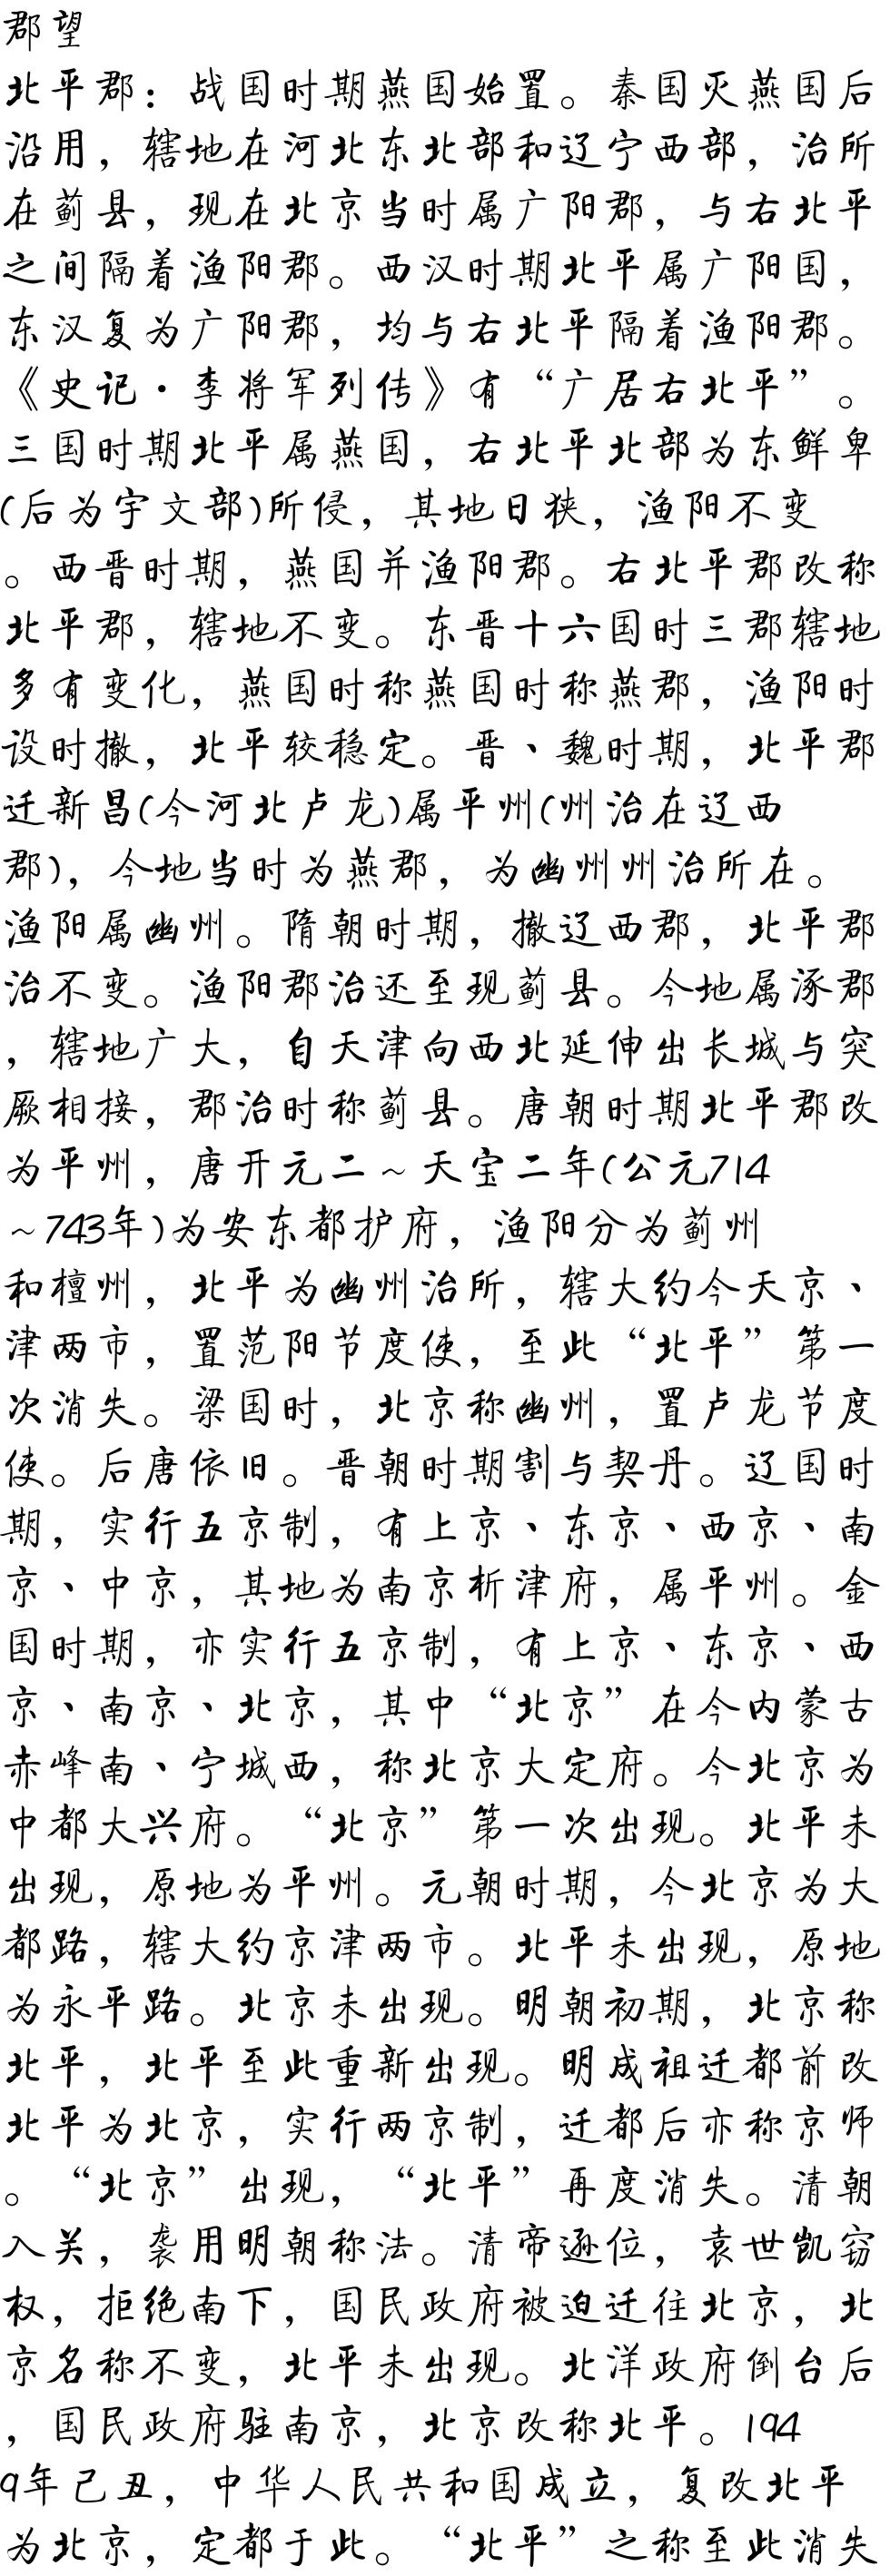 郡望
北平郡：战国时期燕国始置。秦国灭燕国后
沿用，辖地在河北东北部和辽宁西部，治所
在蓟县，现在北京当时属广阳郡，与右北平
之间隔着渔阳郡。西汉时期北平属广阳国，
东汉复为广阳郡，均与右北平隔着渔阳郡。
《史记·李将军列传》有“广居右北平”。
三国时期北平属燕国，右北平北部为东鲜卑
(后为宇文部)所侵，其地日狭，渔阳不变
。西晋时期，燕国并渔阳郡。右北平郡改称
北平郡，辖地不变。东晋十六国时三郡辖地
多有变化，燕国时称燕国时称燕郡，渔阳时
设时撤，北平较稳定。晋、魏时期，北平郡
迁新昌(今河北卢龙)属平州(州治在辽西
郡)，今地当时为燕郡，为幽州州治所在。
渔阳属幽州。隋朝时期，撤辽西郡，北平郡
治不变。渔阳郡治还至现蓟县。今地属涿郡
，辖地广大，自天津向西北延伸出长城与突
厥相接，郡治时称蓟县。唐朝时期北平郡改
为平州，唐开元二～天宝二年(公元714
～743年)为安东都护府，渔阳分为蓟州
和檀州，北平为幽州治所，辖大约今天京、
津两市，置范阳节度使，至此“北平”第一
次消失。梁国时，北京称幽州，置卢龙节度
使。后唐依旧。晋朝时期割与契丹。辽国时
期，实行五京制，有上京、东京、西京、南
京、中京，其地为南京析津府，属平州。金
国时期，亦实行五京制，有上京、东京、西
京、南京、北京，其中“北京”在今内蒙古
赤峰南、宁城西，称北京大定府。今北京为
中都大兴府。“北京”第一次出现。北平未
出现，原地为平州。元朝时期，今北京为大
都路，辖大约京津两市。北平未出现，原地
为永平路。北京未出现。明朝初期，北京称
北平，北平至此重新出现。明成祖迁都前改
北平为北京，实行两京制，迁都后亦称京师
。“北京”出现，“北平”再度消失。清朝
入关，袭用明朝称法。清帝逊位，袁世凯窃
权，拒绝南下，国民政府被迫迁往北京，北
京名称不变，北平未出现。北洋政府倒台后
，国民政府驻南京，北京改称北平。194
9年己丑，中华人民共和国成立，复改北平
为北京，定都于此。“北平”之称至此消失